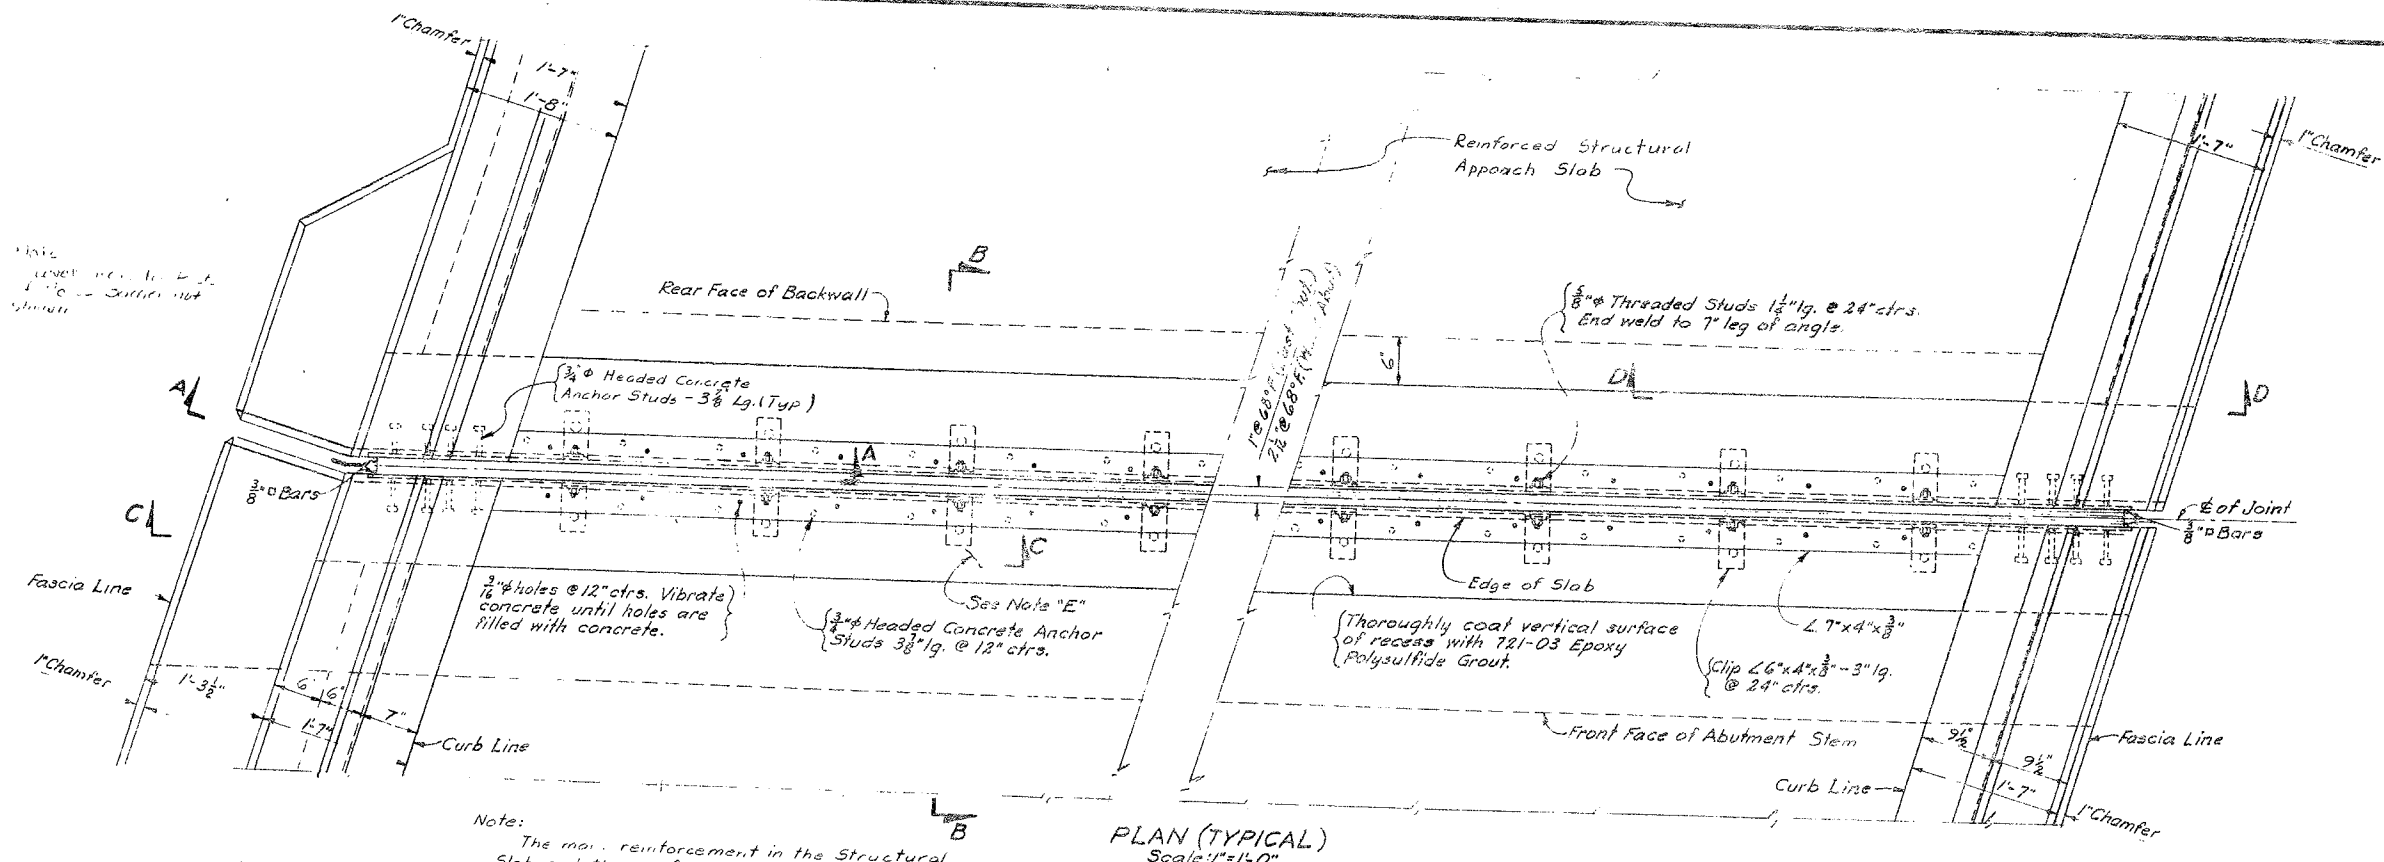 1" Chamfer
1'-7"
1'-8"
Reinforced Structural
Appoach Slab
1'-7"
1" Chamfer
B
Rear Face of Backwall
1" @ 68°F
2 1/2" @ 68°F
5/8" φ Threaded Studs 1 1/4" lg. @ 24" ctrs.
End weld to 7" leg of angle.
6"
3/4" φ Headed Concrete
Anchor Studs - 3 7/8 Lg. (Typ)
A
D
D
A
3/8" □ Bars
C
C
℄ of Joint
3/8" □ Bars
Fascia Line
9/16" φ holes @ 12" ctrs. Vibrate
concrete until holes are
filled with concrete.
See Note "E"
3/4" φ Headed Concrete Anchor
Studs 3 7/8" lg. @ 12" ctrs.
Edge of Slab
Thoroughly coat vertical surface
of recess with 721-03 Epoxy
Polysulfide Grout.
∠ 7"x4"x3/8"
Clip ∠6"x4"x3/8" - 3" lg.
@ 24" ctrs.
1" Chamfer
1'-3 1/2"
6" 6"
1'-7"
7"
Curb Line
Front Face of Abutment Stem
9 1/2"
9 1/2"
Fascia Line
Curb Line
1'-7"
1" Chamfer
B
Note:
The reinforcement in the Structural
PLAN (TYPICAL)
Scale: 1"=1'-0"